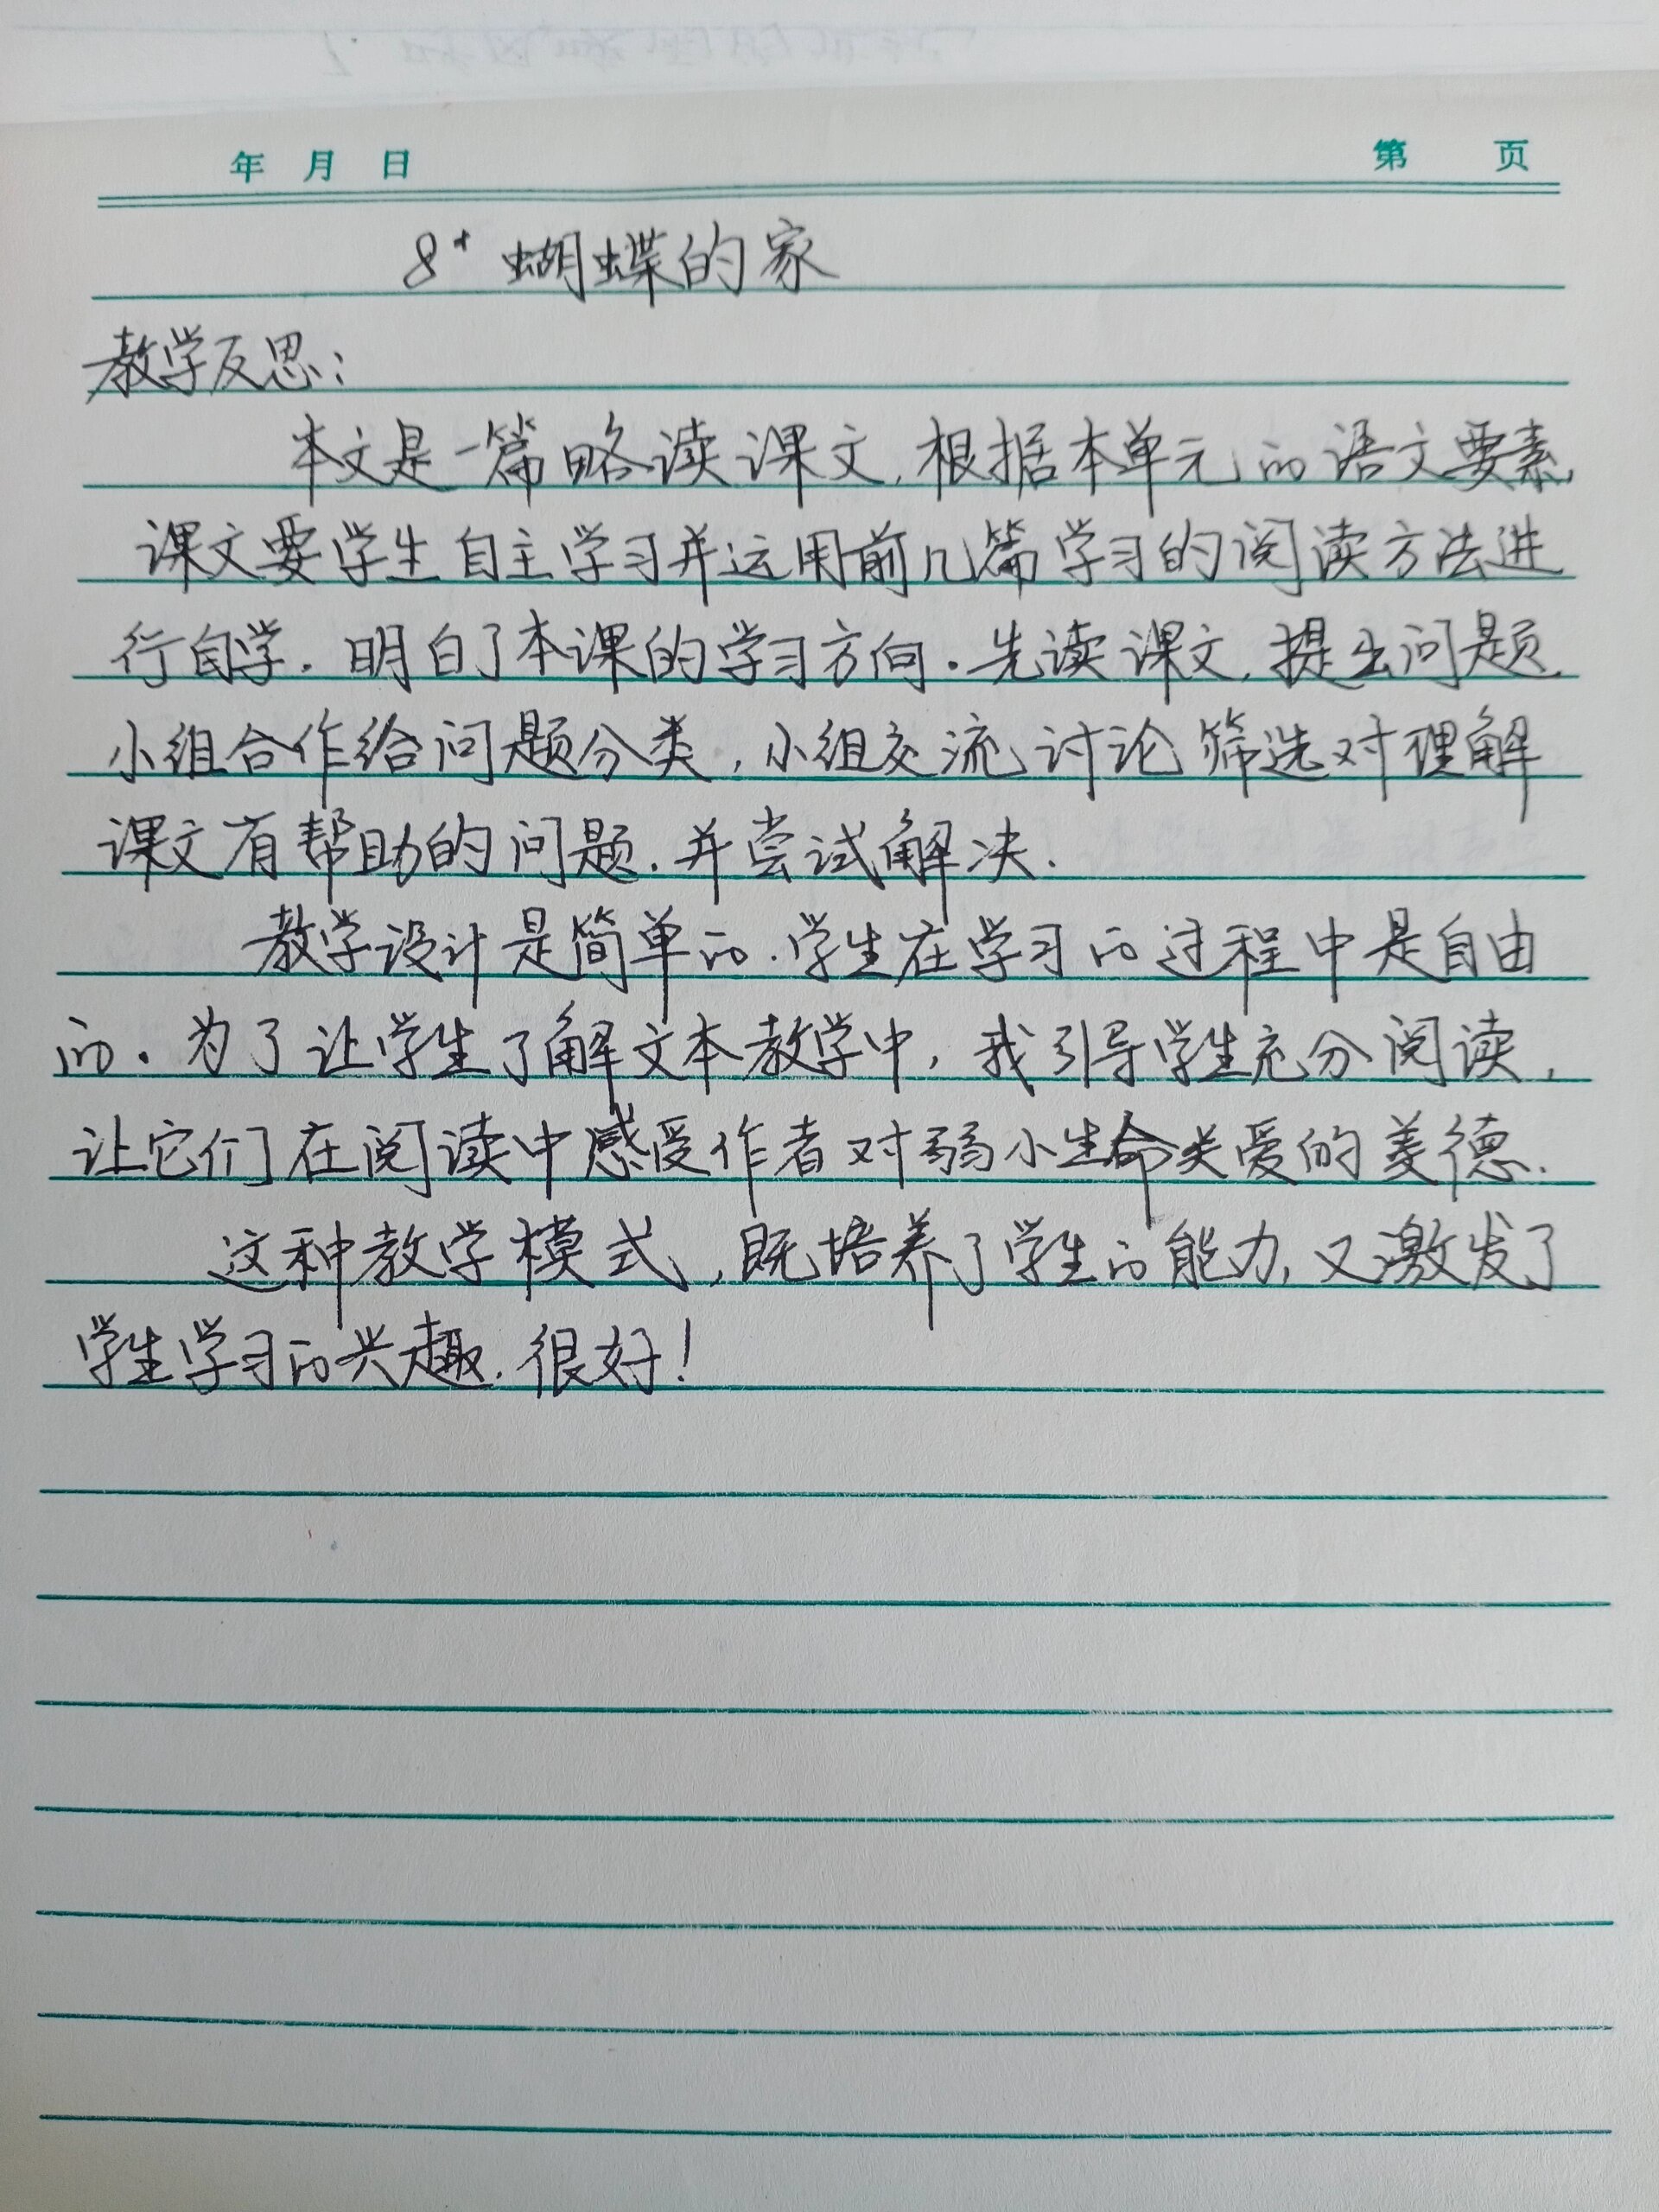 年 月 日 第 页
8* 蝴蝶的家
教学反思：
本文是一篇略读课文,根据本单元的语文要素,
课文要学生自主学习并运用前几篇学习的阅读方法进
行自学.明白了本课的学习方向.先读课文,提出问题,
小组合作给问题分类,小组交流讨论筛选对理解
课文有帮助的问题.并尝试解决.
教学设计是简单的.学生在学习的过程中是自由
的.为了让学生了解文本教学中,我引导学生充分阅读,
让它们在阅读中感受作者对弱小生命关爱的美德.
这种教学模式,既培养了学生的能力,又激发了
学生学习的兴趣.很好!